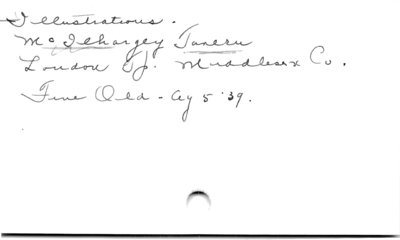 Illustrations.
McIlhargey Tavern
London Tp. Middlesex Co.
Fine Old - Ag 5 '39.